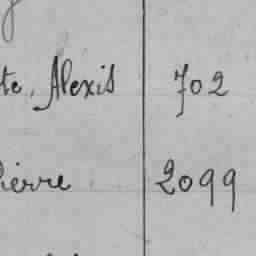 te, Alexis 702
Pierre 2099